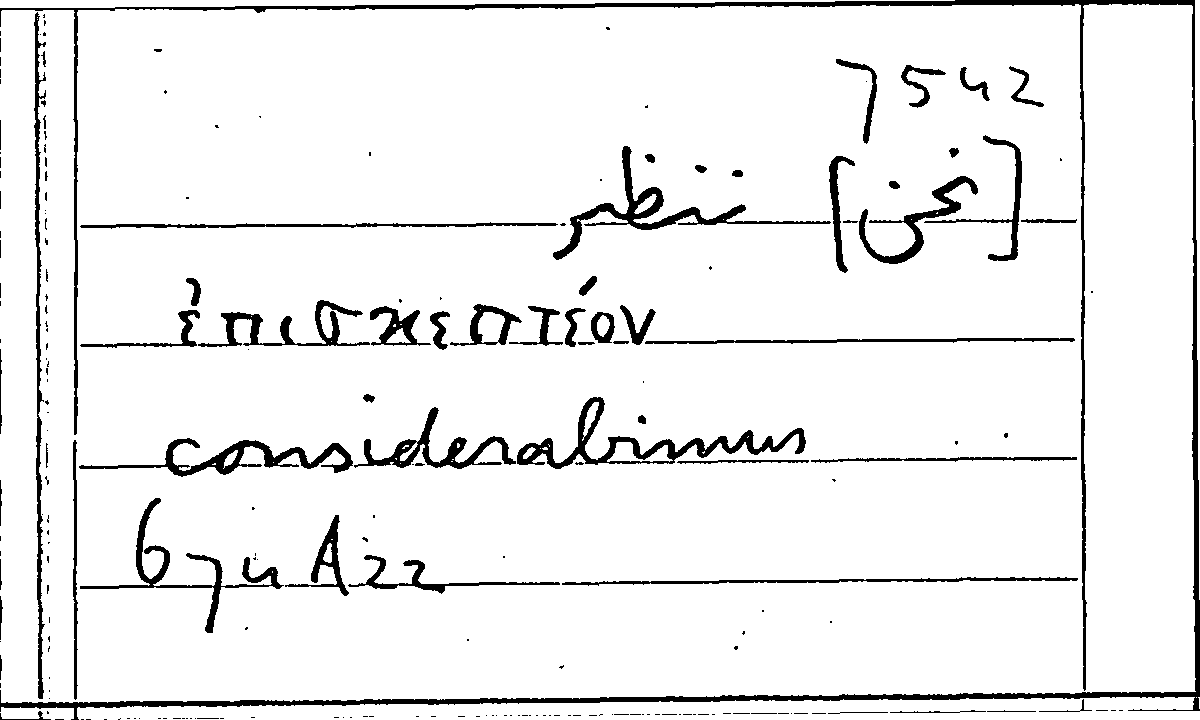 7542
[نحن] ننظر
ἐπισκεπτέον
considerabimus
674A22